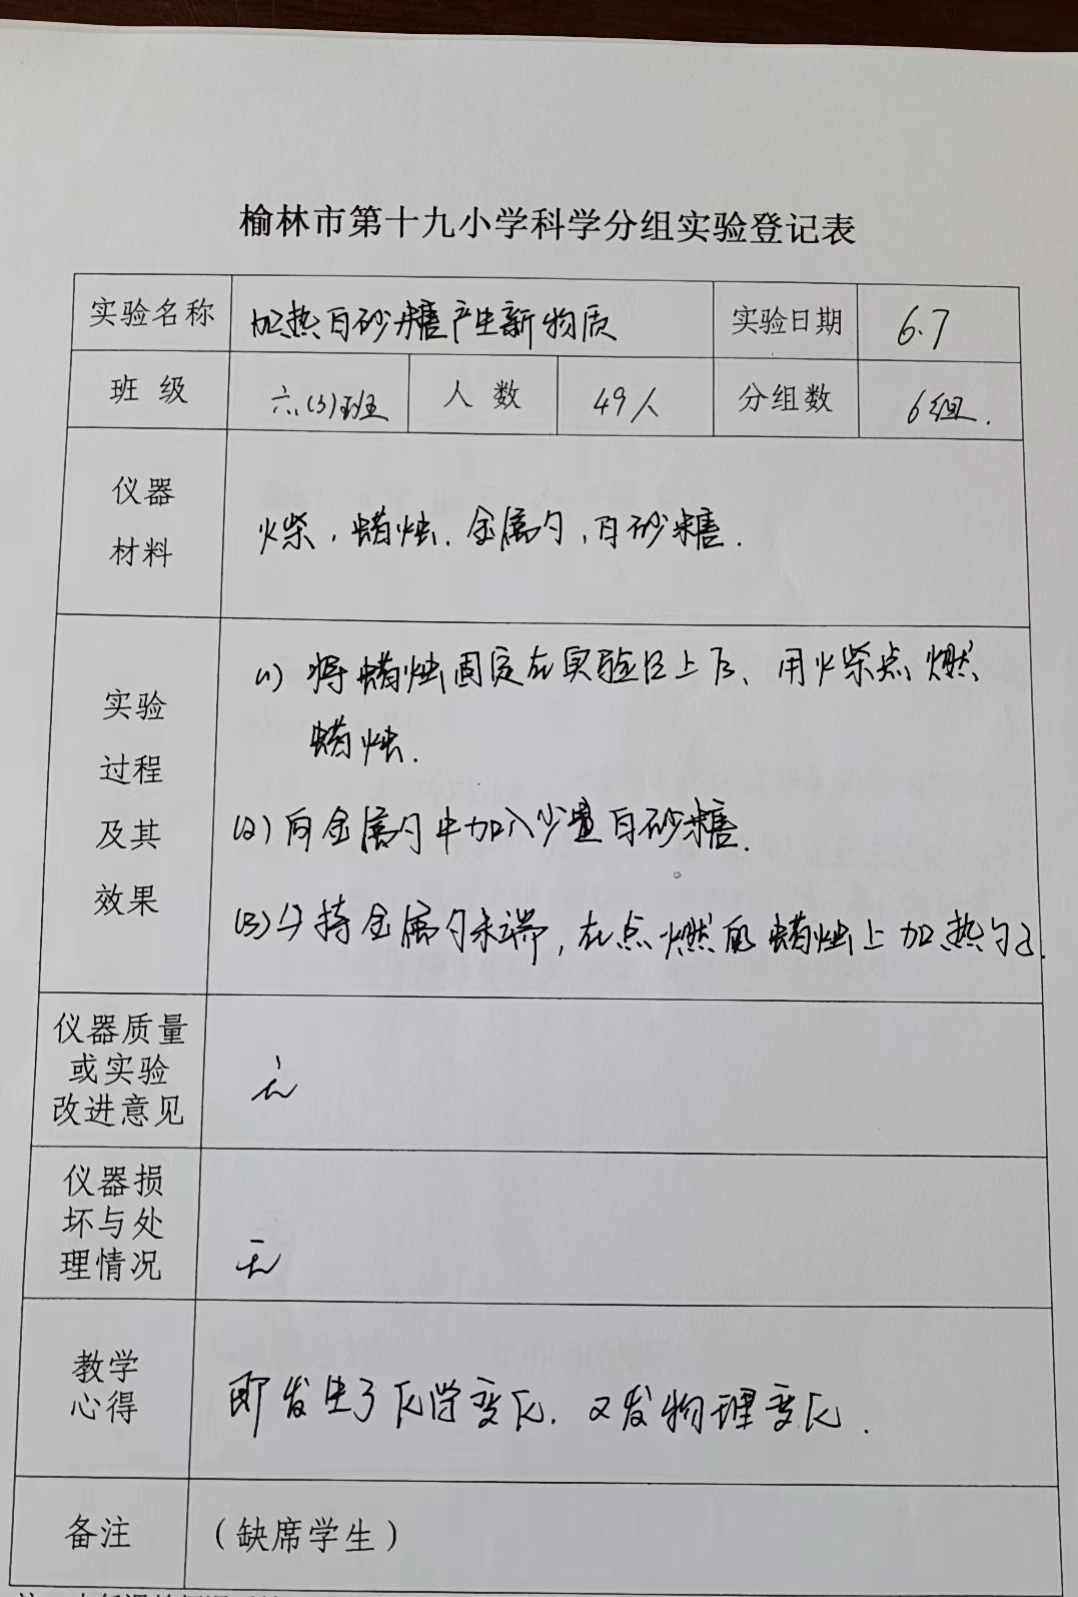 榆林市第十九小学科学分组实验登记表
实验名称 加热白砂糖产生新物质 实验日期 6.7
班 级 六.(3)班 人 数 49人 分组数 6组.
仪器
材料
火柴,蜡烛.金属勺,白砂糖.
实验
过程
及其
效果
(1) 将蜡烛固定在实验台上后、用火柴点燃
蜡烛.
(2) 向金属勺中加入少量白砂糖.
(3) 手持金属勺末端,在点燃的蜡烛上加热勺子.
仪器质量
或实验
改进意见
无
仪器损
坏与处
理情况
无
教学
心得
即发生了化学变化.又发物理变化.
备注 (缺席学生)